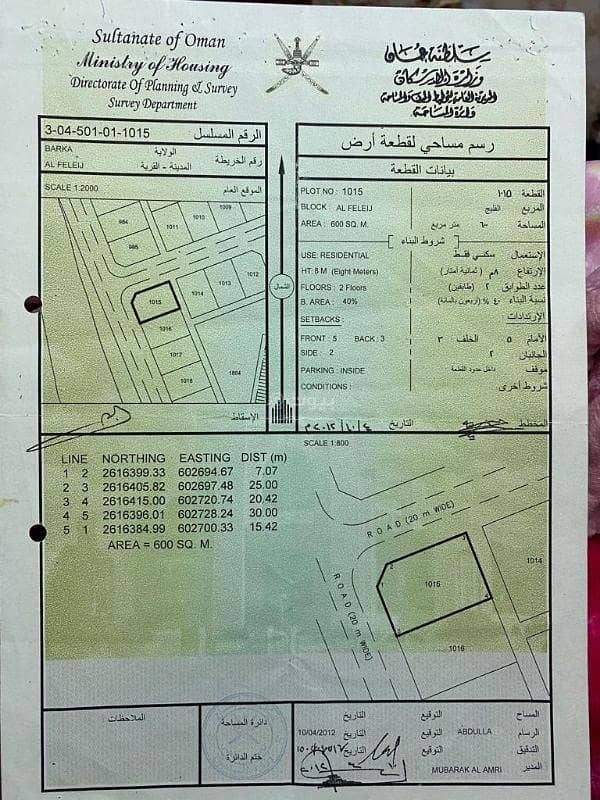 Sultanate of Oman
Ministry of Housing
Directorate Of Planning & Survey
Survey Department
سلطنة عمان
وزارة الإسكان
3-04-501-01-1015 الرقم المسلسل
BARKA الولاية
AL FELEIJ المدينة - القرية
رقم الخريطة
SCALE 1:2000 الموقع العام
984
985
1011
1010
1009
1015
1014
1013
1012
1016
1017
1018
1884
الشمال
الإسقاط
رسم مساحي لقطعة أرض
بيانات القطعة
PLOT NO : 1015 القطعة ١٠١٥
BLOCK : AL FELEIJ المربع الفليج
AREA : 600 SQ. M. المساحة ٦٠٠ متر مربع
شروط البناء
USE: RESIDENTIAL الإستعمال سكني فقط
HT: 8 M (Eight Meters) الإرتفاع ٨م ( ثمانية أمتار)
FLOORS : 2 Floors عدد الطوابق ٢ (طابقين)
B. AREA : 40% نسبة البناء ٤٠ % (أربعون بالمائة)
SETBACKS : الإرتدادات
FRONT : 5 BACK : 3 الأمام ٥ الخلف ٣
SIDE : 2 الجانبان ٢
PARKING : INSIDE موقف داخل حدود القطعة
CONDITIONS : شروط أخرى
المخطط التاريخ ٢٠١٢/١٠/٤م
SCALE 1:800
LINE NORTHING EASTING DIST (m)
1 2 2616399.33 602694.67 7.07
2 3 2616405.82 602697.48 25.00
3 4 2616415.00 602720.74 20.42
4 5 2616396.01 602728.24 30.00
5 1 2616384.99 602700.33 15.42
AREA = 600 SQ. M.
ROAD (20 m WIDE)
ROAD (20 m WIDE)
1
2
3
4
5
1015
1014
1016
الملاحظات
دائرة المساحة
ختم الدائرة
المساح التوقيع التاريخ
الرسام ABDULLA التوقيع 10/04/2012 التاريخ
التدقيق التوقيع التاريخ
المدير MUBARAK AL AMRI